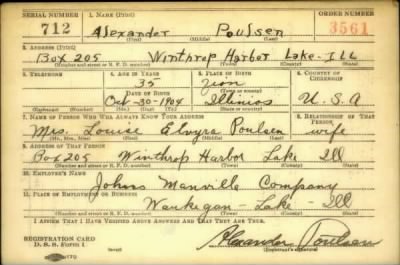 SERIAL NUMBER 1. NAME (Print) ORDER NUMBER
712 Alexander Poulsen 3561
(First) (Middle) (Last)
2. ADDRESS (Print)
Box 205 Winthrop Harbor Lake - Ill
(Number and street or R. F. D. number) (Town) (County) (State)
3. TELEPHONE 4. AGE IN YEARS 5. PLACE OF BIRTH 6. COUNTRY OF CITIZENSHIP
35 Zion
DATE OF BIRTH (Town or county)
Oct-30-1904 Illinios U.S.A
(Exchange) (Number) (Mo.) (Day) (Yr.) (State or country)
7. NAME OF PERSON WHO WILL ALWAYS KNOW YOUR ADDRESS 8. RELATIONSHIP OF THAT PERSON
Mrs. Louise Elvyra Poulsen wife
(Mr., Mrs., Miss) (First) (Middle) (Last)
9. ADDRESS OF THAT PERSON
Box 205 Winthrop Harbor Lake Ill
(Number and street or R. F. D. number) (Town) (County) (State)
10. EMPLOYER'S NAME
Johns Manville Company
11. PLACE OF EMPLOYMENT OR BUSINESS
Waukegan - Lake - Ill
(Number and street or R. F. D. number) (Town) (County) (State)
I AFFIRM THAT I HAVE VERIFIED ABOVE ANSWERS AND THAT THEY ARE TRUE.
REGISTRATION CARD
D. S. S. Form 1 Alexander Poulsen
(Registrant's signature)